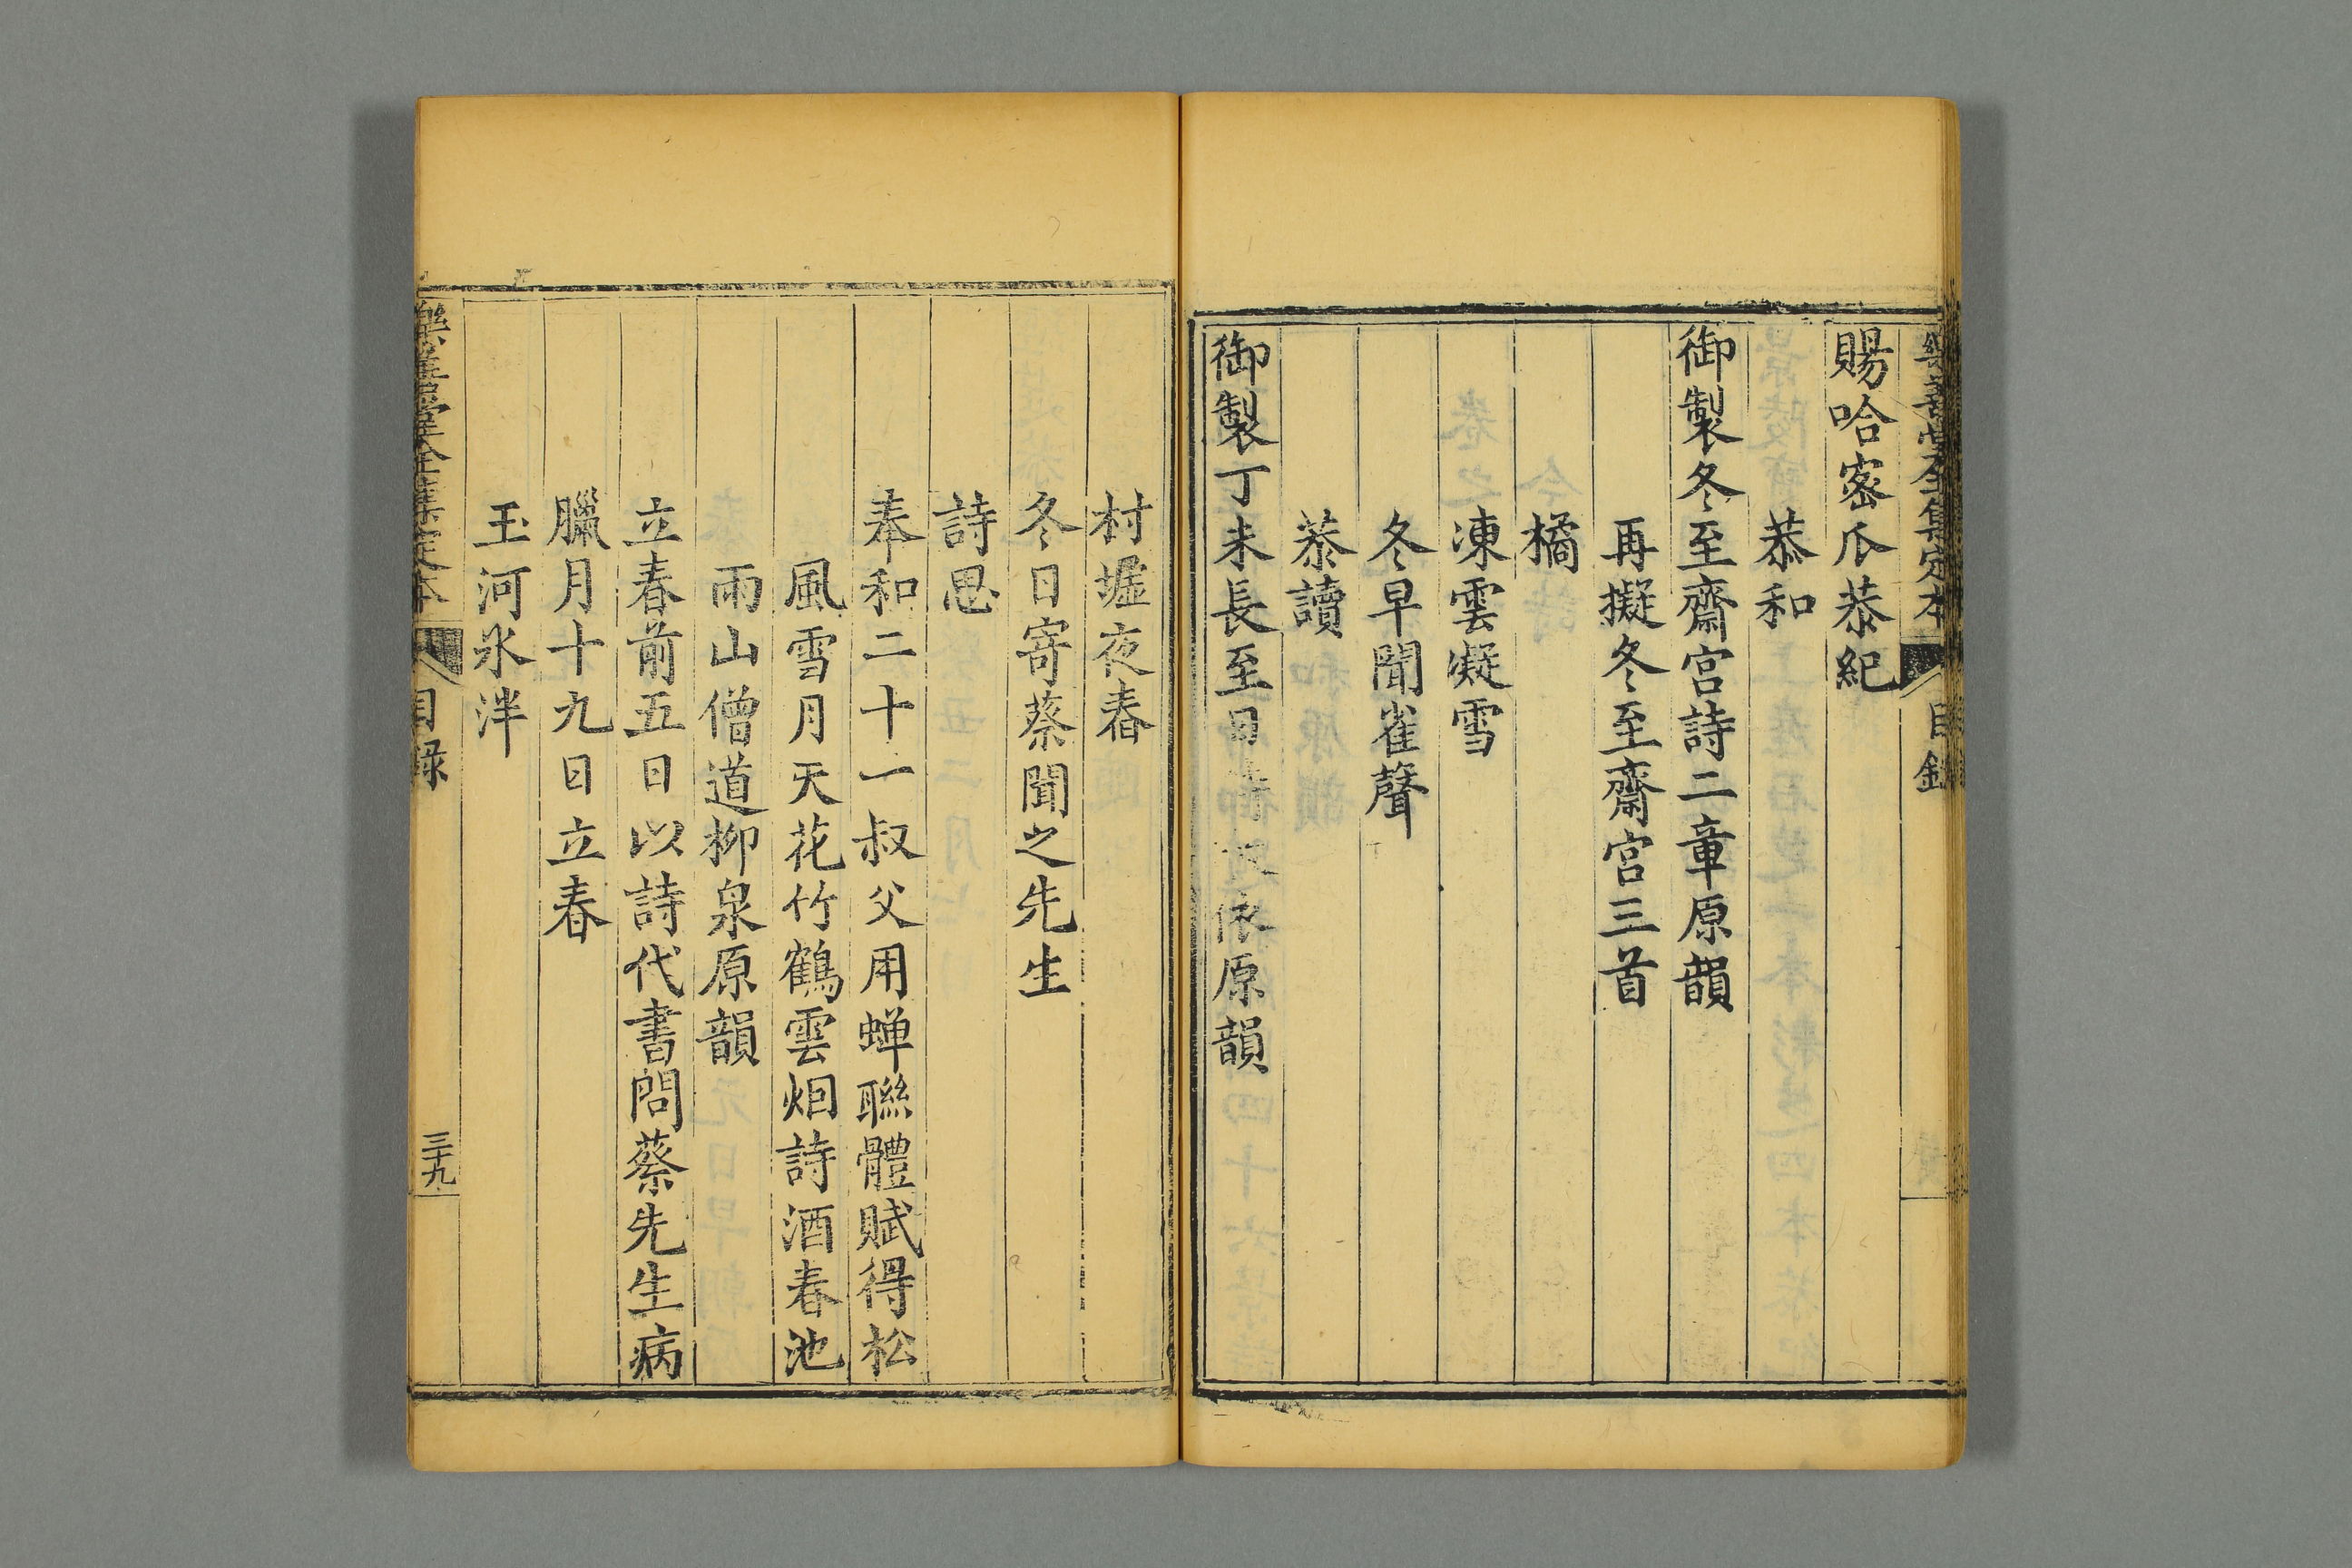 樂善堂全集定本 目録
賜哈密瓜恭紀
恭和
御製冬至齋宮詩二章原韻
再擬冬至齋宮三首
橘
凍雲凝雪
冬早聞雀聲
恭讀
御製丁未長至日 依原韻
村墟夜舂
冬日寄蔡聞之先生
詩思
奉和二十一叔父用蟬聯體賦得松
風雪月天花竹鶴雲烟詩酒春池
雨山僧道柳泉原韻
立春前五日以詩代書問蔡先生病
臘月十九日立春
玉河氷泮
樂善堂全集定本 目録 三十九